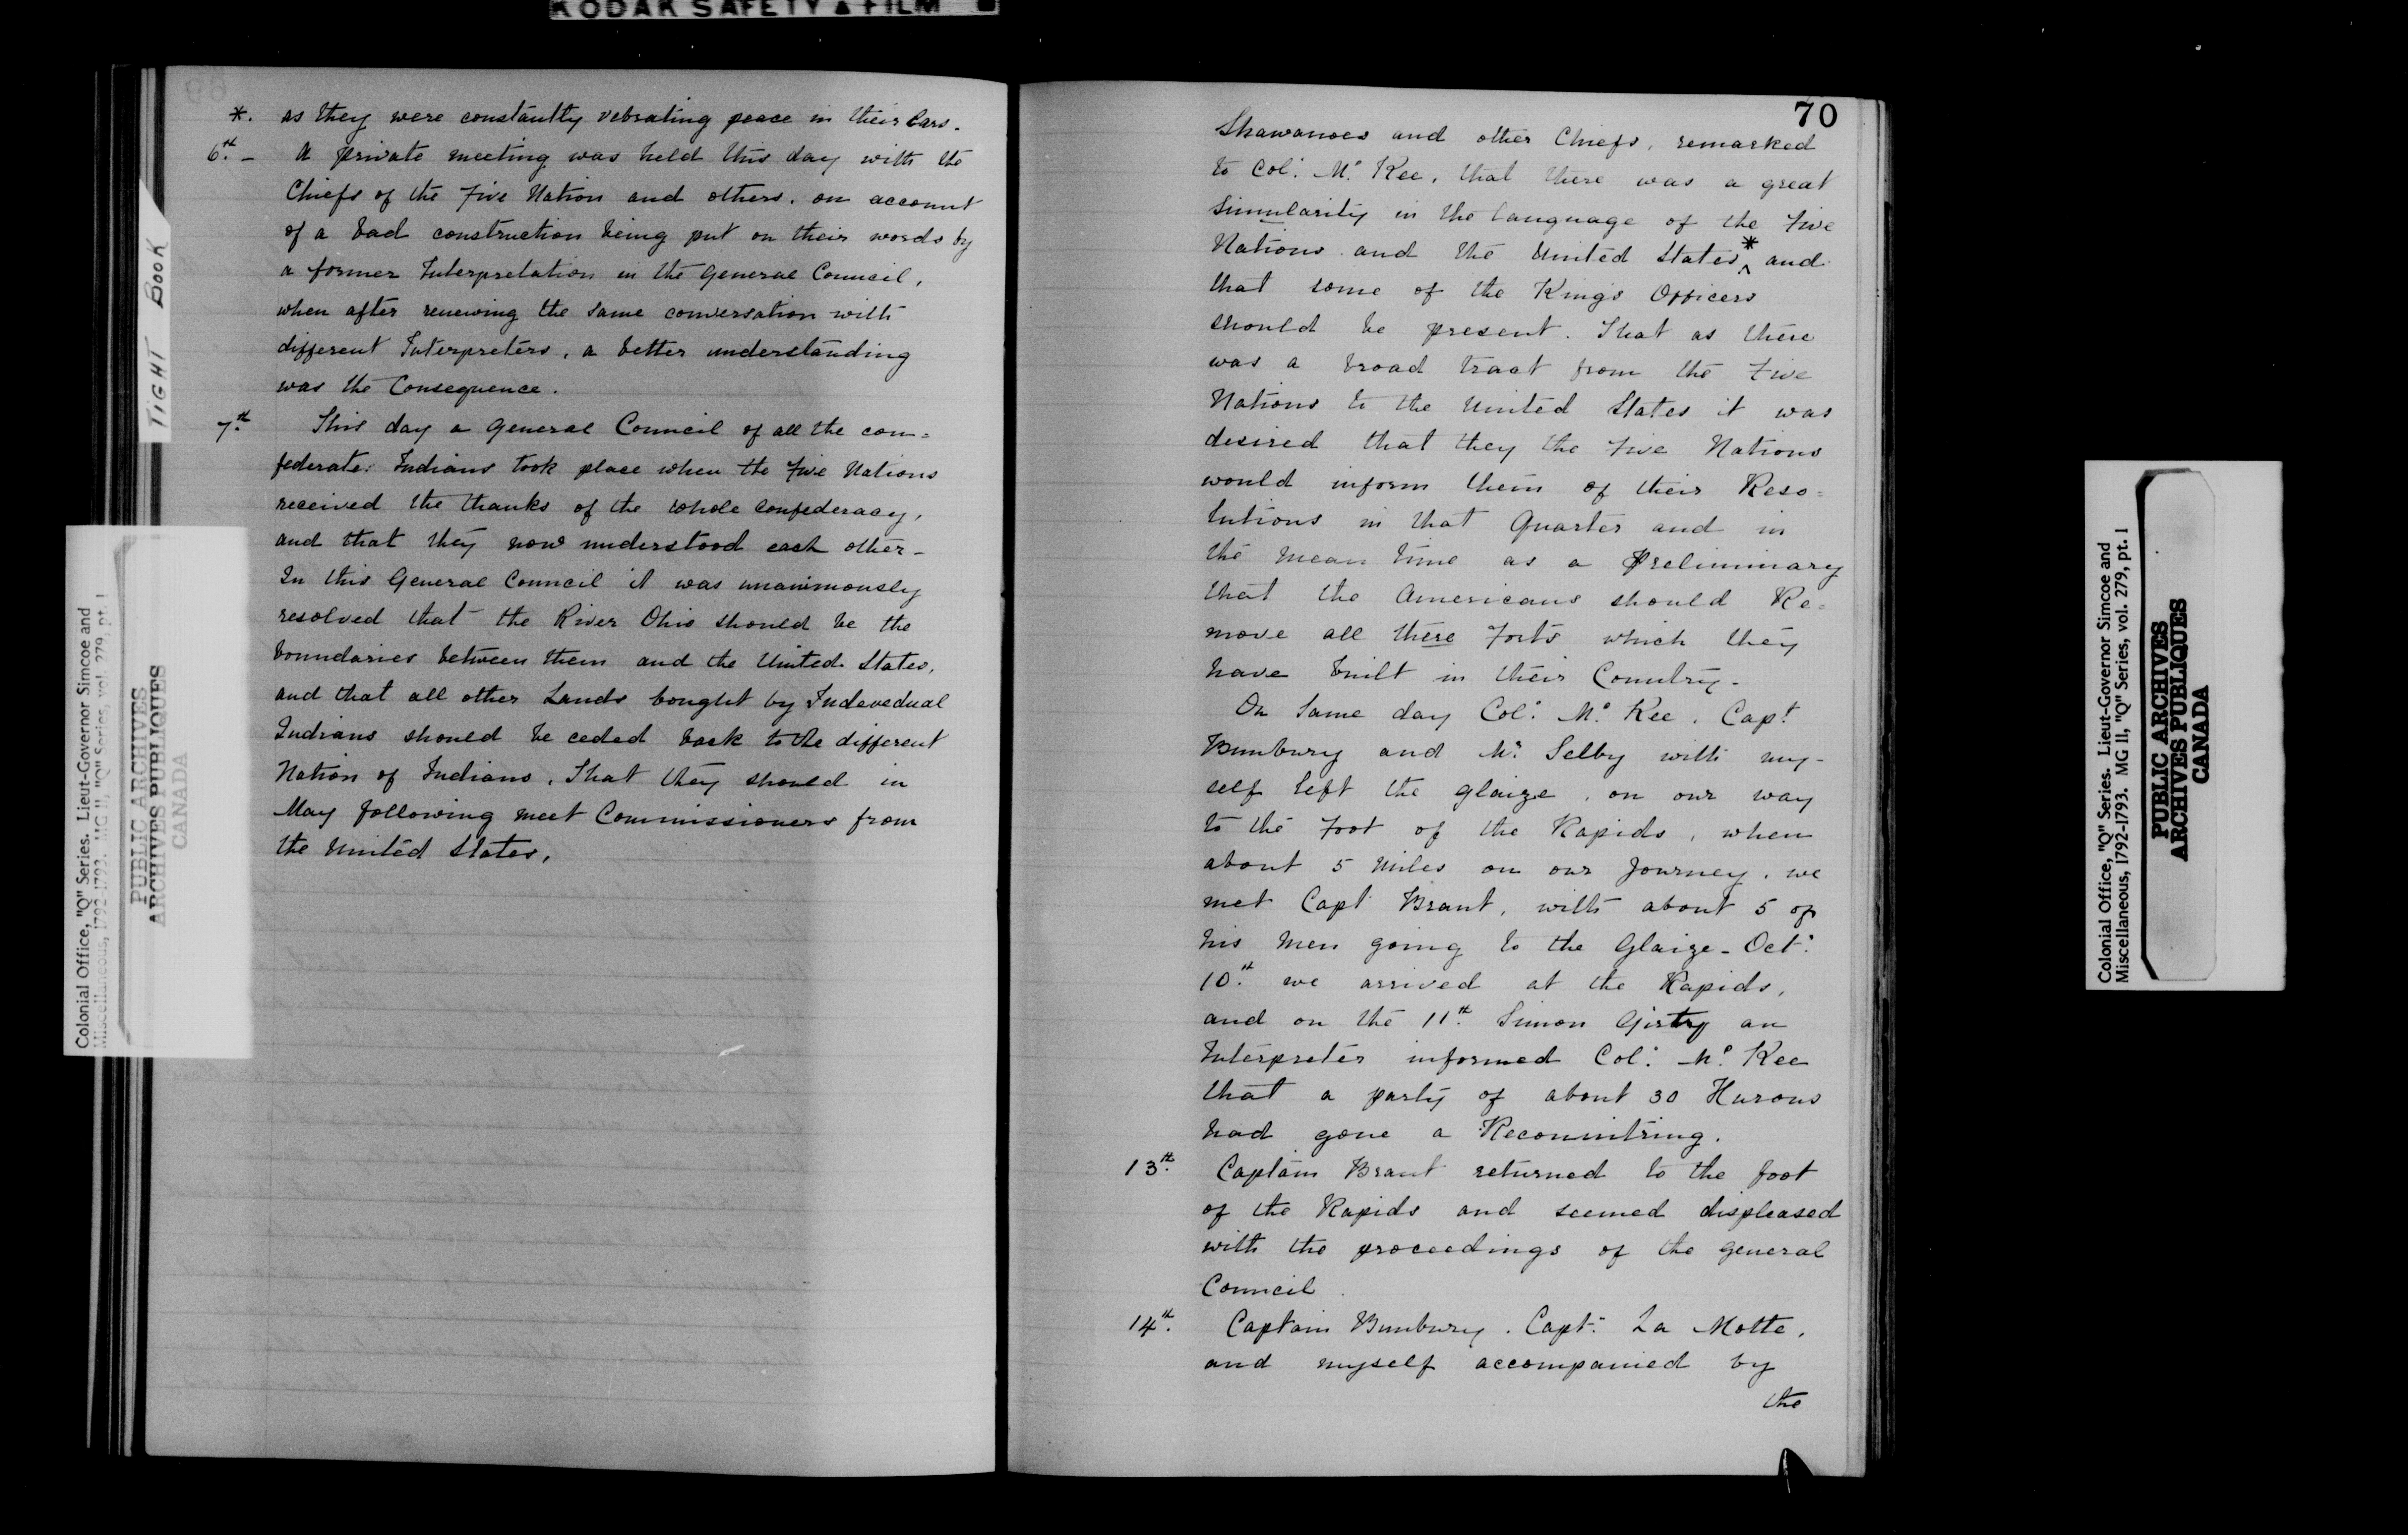 KODAK SAFETY FILM
TIGHT BOOK
*. as they were constantly vebrating peace in their Ears.
6th. – A private meeting was held this day with the
Chiefs of the Five Nation and others, on account
of a bad construction being put on their words by
a former Interpretation in the General Council,
when after renewing the same conversation with
different Interpreters, a better understanding
was the Consequence.
7th. This day a General Council of all the con=
federate Indians took place when the Five Nations
received the thanks of the whole confederacy,
and that they now understood each other –
In this General Council it was unanimously
resolved that the River Ohio should be the
boundaries between them and the United States,
and that all other Lands bought by Indevedual
Indians should be ceded back to the different
Nation of Indians. That they should in
May following meet Commissioners from
the United States,
Colonial Office, "Q" Series. Lieut-Governor Simcoe and
Miscellaneous, 1792-1793. MG 11, "Q" Series, vol. 279, pt. 1
PUBLIC ARCHIVES
ARCHIVES PUBLIQUES
CANADA
70
Shawanoes and other Chiefs, remarked
to Col: Mc Kee, that there was a great
simularity in the language of the Five
Nations and the United States * and
that some of the Kings Officers
should be present. That as there
was a broad traat from the Five
Nations to the United States it was
desired that they the Five Nations
would inform them of their Reso=
lutions in that Quarter and in
the mean time as a Preliminary
that the Americans should Re=
move all there Forts which they
have built in their Country –
On Same day Col: Mc Kee, Capt
Bunbury and Mr Selby with my-
self left the Glaize, on our way
to the Foot of the Rapids, when
about 5 Miles on our Journey, we
met Capt Brant, with about 5 of
his Men going to the Glaize – Oct:
10th. we arrived at the Rapids,
and on the 11th. Simon Girty an
Interpreter informed Col: Mc Kee
that a party of about 30 Hurons
had gone a Reconnitring.
13th. Captain Brant returned to the foot
of the Rapids and seemed displeased
with the proceedings of the General
Council
14th. Captain Bunbury. Capt: La Motte,
and myself accompanied by
the
Colonial Office, "Q" Series. Lieut-Governor Simcoe and
Miscellaneous, 1792-1793. MG 11, "Q" Series, vol. 279, pt. 1
PUBLIC ARCHIVES
ARCHIVES PUBLIQUES
CANADA